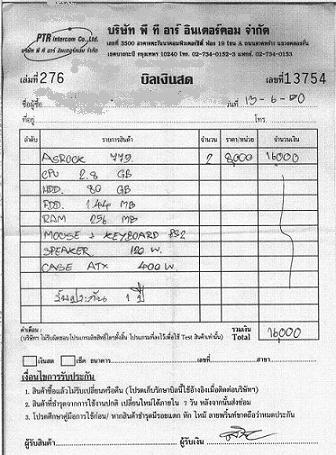 PTR Intercom Co.,Ltd.
บริษัท พี ที อาร์ อินเตอร์คอม จำกัด
บริษัท พี ที อาร์ อินเตอร์คอม จำกัด
เลขที่ 3500
เขตบางกะปิ กรุงเทพฯ 10240 โทร. 02-734-0152-3 แฟกซ์. 02-734-0153
เล่มที่ 276
บิลเงินสด
เลขที่ 13754
ชื่อผู้ซื้อ
วันที่
ที่อยู่
โทร
ลำดับ รายการสินค้า จำนวน ราคา/หน่วย จำนวนเงิน
ASROCK 779 2 8,000 16,000
CPU 2.8 GB
HDD. 80 GB
FDD. 1.44 MB
RAM 256 MB
MOUSE + KEYBOARD PS2
SPEAKER 120 W.
CASE ATX 400 W.
รับประกัน 1 ปี
คำเตือน
รวมเงิน
Total 16,000
เงินสด เช็ค ธนาคาร เลขที่ สาขา
เงื่อนไขการรับประกัน
1. สินค้าซื้อแล้วไม่รับเปลี่ยนหรือคืน
2. สินค้าที่ชำรุดจากการใช้งานปกติ เปลี่ยนใหม่ได้ภายใน 7 วัน หลังจากนั้นส่งซ่อม
3. โปรดศึกษาคู่มือการใช้ก่อน
ผู้รับสินค้า ผู้รับเงิน